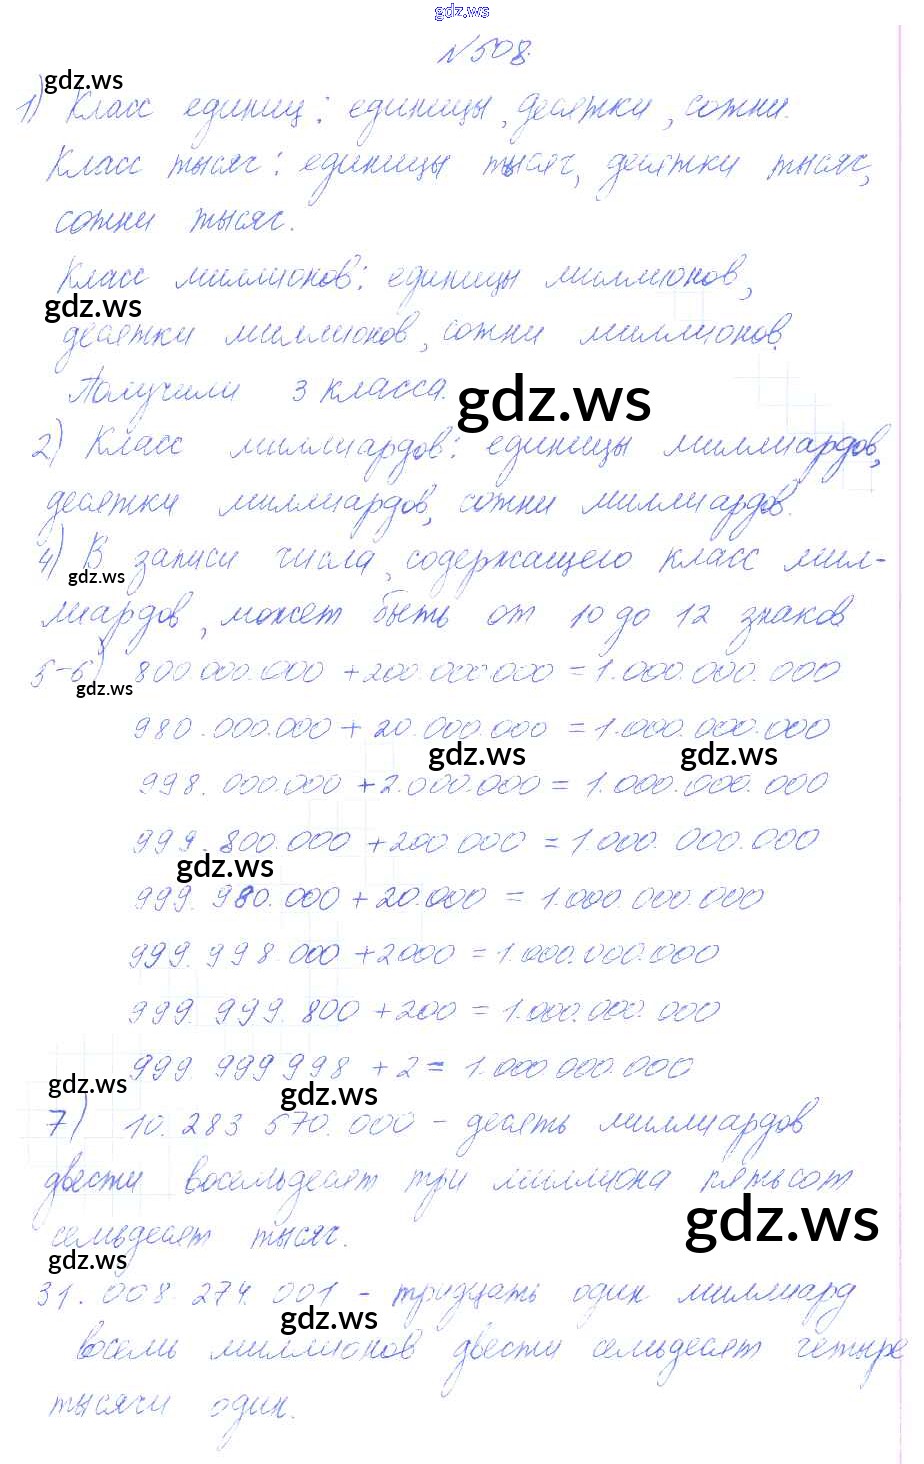 gdz.ws
№508.
gdz.ws
1) Класс единиц: единицы, десятки, сотни.
Класс тысяч: единицы тысяч, десятки тысяч,
сотни тысяч.
Класс миллионов: единицы миллионов,
gdz.ws
десятки миллионов, сотни миллионов.
Получили 3 класса.
gdz.ws
2) Класс миллиардов: единицы миллиардов,
десятки миллиардов, сотни миллиардов.
4) В записи числа, содержащего класс мил-
gdz.ws
лиардов, может быть от 10 до 12 знаков
5-6) 800 000.000 + 200.000 000 = 1.000.000.000
gdz.ws
980.000.000 + 20.000.000 = 1.000.000.000
gdz.ws gdz.ws
998.000.000 + 2.000.000 = 1.000.000.000
999.800.000 + 200 000 = 1.000.000.000
gdz.ws
999.980.000 + 20.000 = 1.000.000.000
999.998.000 + 2000 = 1.000.000.000
999.999.800 + 200 = 1.000.000.000
999.999 998 + 2 = 1.000 000.000
gdz.ws
gdz.ws
7) 10.283 570.000 - десять миллиардов
двести восемьдесят три миллиона пятьсот
gdz.ws
семьдесят тысяч.
gdz.ws
31.008.274.001 - тридцать один миллиард
gdz.ws
восемь миллионов двести семьдесят четыре
тысячи один.